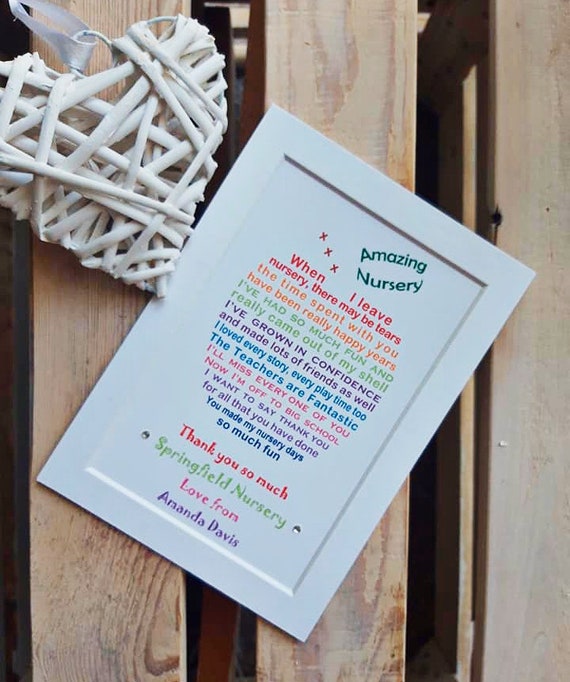 x
x
x
Amazing
Nursery
When I leave
nursery, there may be tears
the time spent with you
have been really happy years
I'VE HAD SO MUCH FUN AND
really came out of my shell
I'VE GROWN IN CONFIDENCE
and made lots of friends as well
I loved every story, every play time too
The Teachers are Fantastic
I'LL MISS EVERY ONE OF YOU
NOW I'M OFF TO BIG SCHOOL
I WANT TO SAY THANK YOU
for all that you have done
You made my nursery days
so much fun
Thank you so much
Springfield Nursery
Love from
Amanda Davis